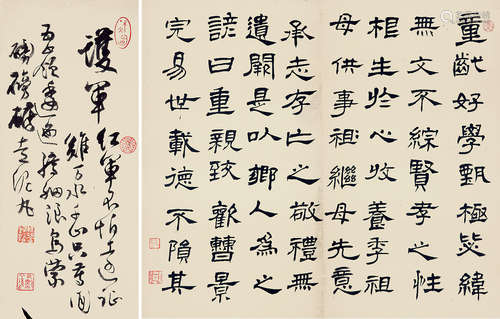 童齔好學甄極毖緯
無文不綜賢孝之性
根生於心收養季祖
母供事祖繼母先意
承志存亡之敬禮無
遺闕是以鄉人為之
諺曰重親致歡曹景
完易世載德不隕其
護軍
紅軍不怕遠征
難萬水千山只等閑
五嶺逶迤騰細浪烏蒙
磅礴走泥丸